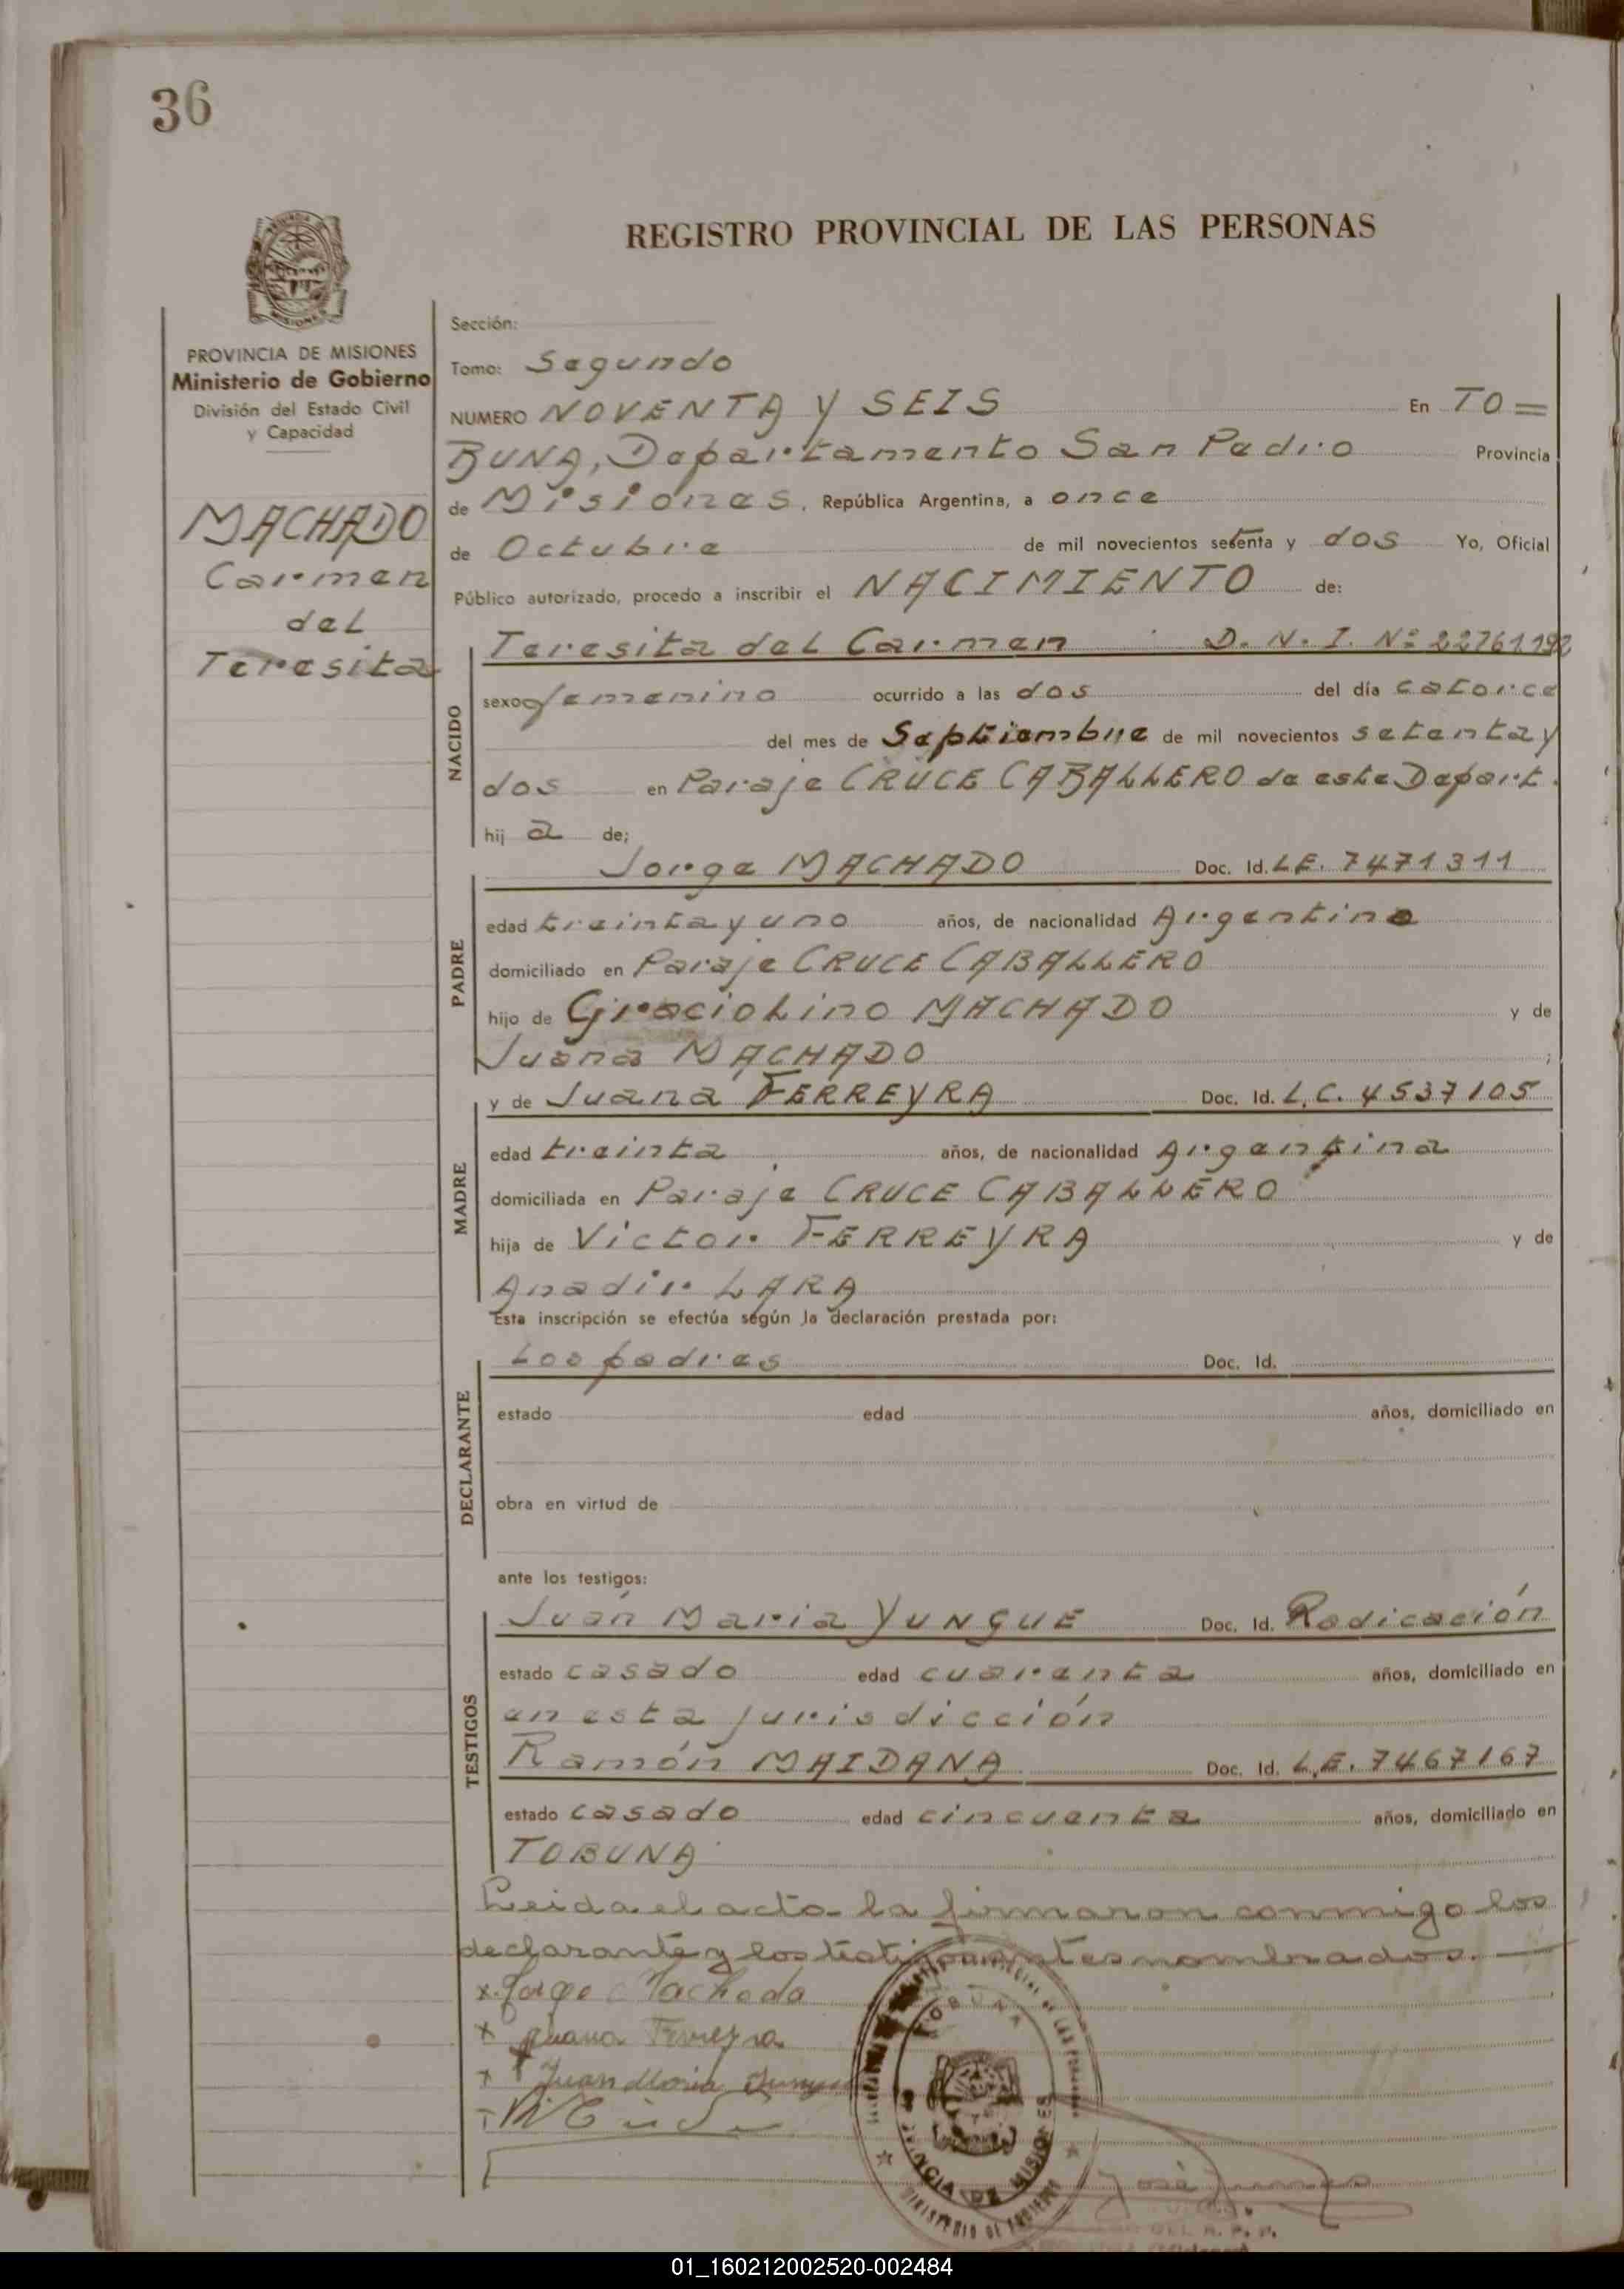 36
REGISTRO PROVINCIAL DE LAS PERSONAS
MISIONES
PROVINCIA DE MISIONES
Ministerio de Gobierno
División del Estado Civil
y Capacidad
MACHADO
Carmen
del
Teresita
Sección:
Tomo: Segundo
NUMERO NOVENTA Y SEIS En TO=
BUNA, Departamento San Pedro Provincia
de Misiones, República Argentina, a once
de Octubre de mil novecientos setenta y dos Yo, Oficial
Público autorizado, procedo a inscribir el NACIMIENTO de:
NACIDO
Teresita del Carmen D. N. I. Nº 22761192
sexo femenino ocurrido a las dos del día catorce
del mes de Septiembre de mil novecientos setenta y
dos en Paraje CRUCE CABALLERO de este Depart.
hij a de;
PADRE
Jorge MACHADO Doc. Id. LE. 7471311
edad treinta y uno años, de nacionalidad Argentino
domiciliado en Paraje CRUCE CABALLERO
hijo de Graciolino MACHADO y de
Juana MACHADO ;
MADRE
y de Juana FERREYRA Doc. Id. L.C. 4537105
edad treinta años, de nacionalidad Argentina
domiciliada en Paraje CRUCE CABALLERO
hija de Victor FERREYRA y de
Anadir LARA
Esta inscripción se efectúa según la declaración prestada por:
DECLARANTE
Los padres Doc. Id.
estado edad años, domiciliado en
obra en virtud de
ante los testigos:
TESTIGOS
Juan Maria YUNGUE Doc. Id. Radicación
estado casado edad cuarenta años, domiciliado en
en esta jurisdicción
Ramón MAIDANA Doc. Id. L.E. 7467167
estado casado edad cincuenta años, domiciliado en
TOBUNA
Leida el acta la firmaron conmigo los
declarante y los testigos antes nombrados.
x Jorge Machado
x Juana Ferreyra
x Juan Maria
TOBUNA
PROVINCIA DE MISIONES
MINISTERIO DE GOBIERNO
José
DEL R. P. P.
01_160212002520-002484